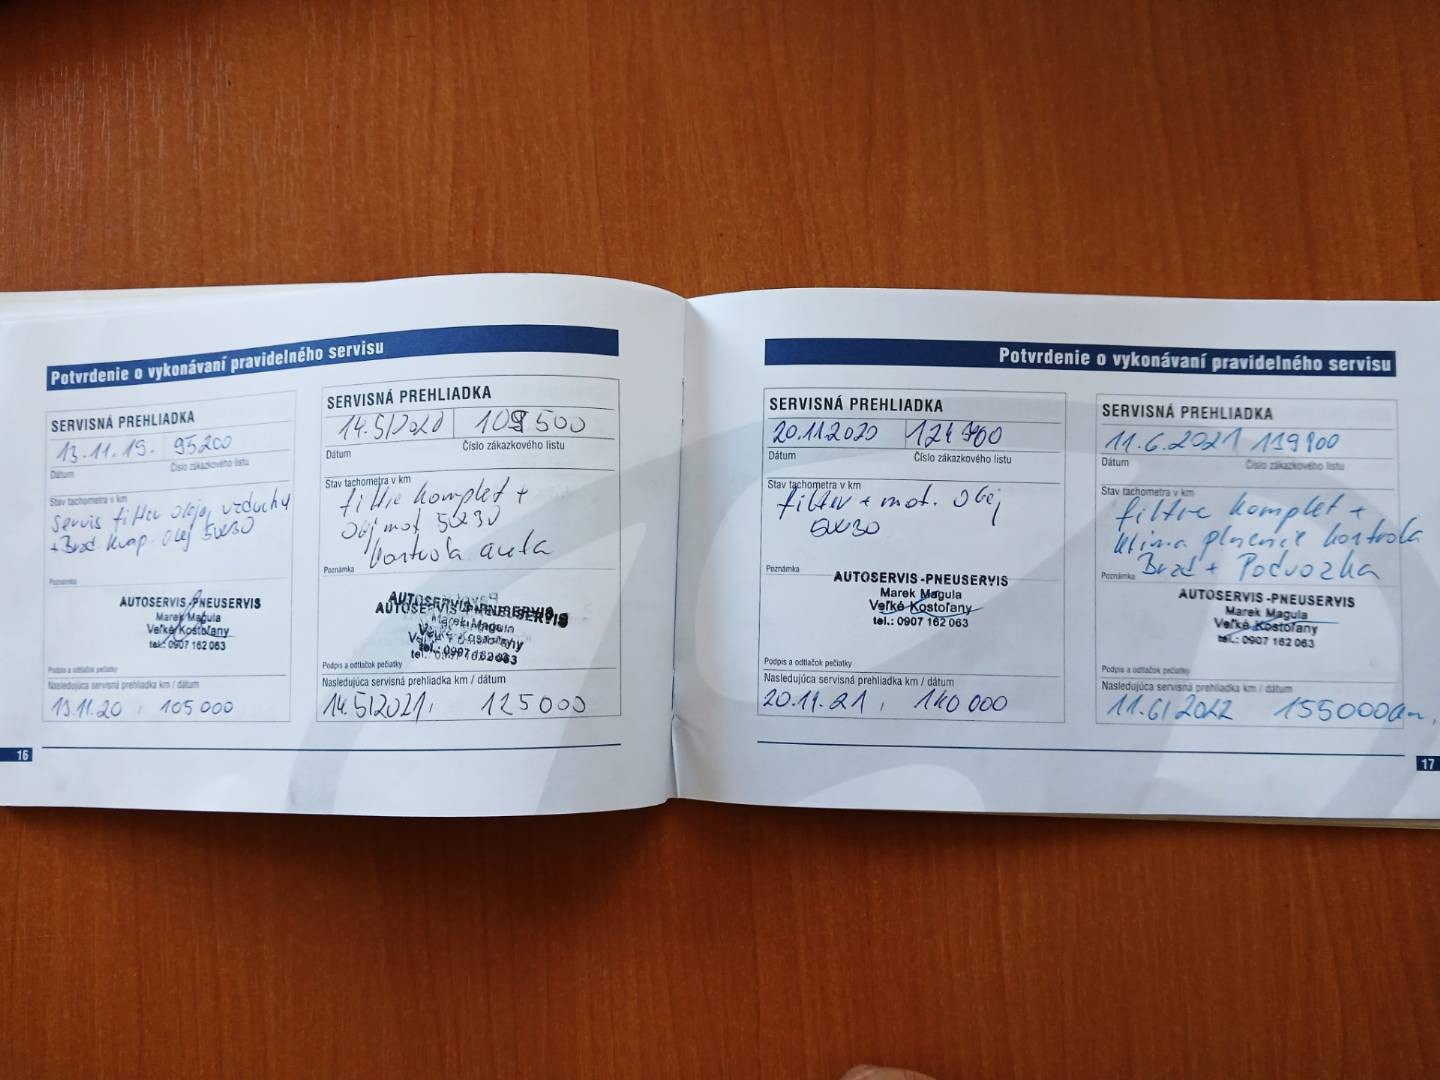 Potvrdenie o vykonávaní pravidelného servisu
SERVISNÁ PREHLIADKA
13.11.19. 95200
Dátum
Číslo zákazkového listu
Stav tachometra v km
Servis filtre olej, vzduchu
+ Brzd. kvap. Olej 5W30
Poznámka
AUTOSERVIS-PNEUSERVIS
Marek Magula
Veľké Kostoľany
tel.: 0907 162 063
Podpis a odtlačok pečiatky
Nasledujúca servisná prehliadka km / dátum
13.11.20, 105 000
16
SERVISNÁ PREHLIADKA
14.5/2020 109 500
Dátum
Číslo zákazkového listu
Stav tachometra v km
filtre komplet +
Olej mot 5W30
kontrola auta
Poznámka
AUTOSERVIS-PNEUSERVIS
Marek Magula
Veľké Kostoľany
tel.: 0907 162 063
Nasledujúca servisná prehliadka km / dátum
14.5/2021, 125 000
Potvrdenie o vykonávaní pravidelného servisu
SERVISNÁ PREHLIADKA
20.11.2020 124 900
Dátum
Číslo zákazkového listu
Stav tachometra v km
filter + mot. Olej
5W30
Poznámka
AUTOSERVIS-PNEUSERVIS
Marek Magula
Veľké Kostoľany
tel.: 0907 162 063
Podpis a odtlačok pečiatky
Nasledujúca servisná prehliadka km / dátum
20.11.21, 140 000
SERVISNÁ PREHLIADKA
11.6.2021 139900
Dátum
Číslo zákazkového listu
Stav tachometra v km
filtre komplet +
klima plnenie kontrola
Brzd + Podvozka
Poznámka
AUTOSERVIS-PNEUSERVIS
Marek Magula
Veľké Kostoľany
tel.: 0907 162 063
Podpis a odtlačok pečiatky
Nasledujúca servisná prehliadka km / dátum
11.6/2022 155000km,
17